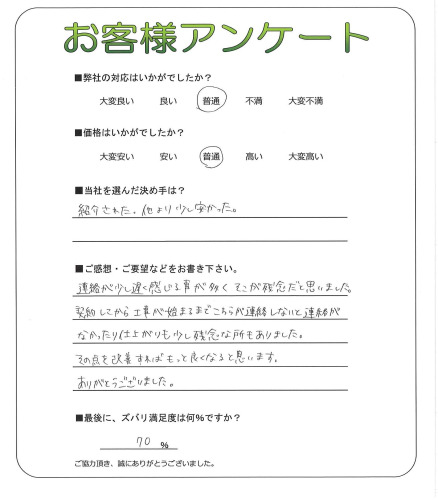 お客様アンケート
■弊社の対応はいかがでしたか？
大変良い 良い 普通 不満 大変不満
■価格はいかがでしたか？
大変安い 安い 普通 高い 大変高い
■当社を選んだ決め手は？
紹介された。他より少し安かった。
■ご感想・ご要望などをお書き下さい。
連絡が少し遅く感じる事が多く そこが残念だと思いました。
契約してから工事が始まるまでこちらが連絡しないと連絡が
なかったり仕上がりも少し残念な所もありました。
その点を改善すればもっと良くなると思います。
ありがとうございました。
■最後に、ズバリ満足度は何％ですか？
70 ％
ご協力頂き、誠にありがとうございました。